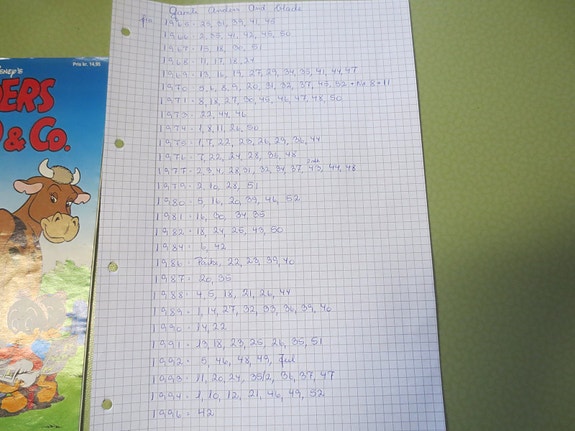 Pris kr. 14,95
DERS
& Co.
Gamle Anders And blade
1966 · 2, 35, 41, 42, 45, 50
1967 · 15, 18, 36, 51
1968 · 11, 17, 18, 24
1969 · 13, 16, 19, 27, 29, 34, 35, 41, 44, 47
1970 · 5, 6, 8, 9, 20, 31, 32, 37, 45, 52 + Nr 8 + 11
1971 · 8, 18, 27, 30, 45, 46, 47, 48, 50
1973 · 22, 44, 46
1974 · 1, 8, 11, 26, 50
1975 · 1, 7, 22, 23, 26, 29, 36, 44
1976 · 7, 22, 24, 28, 36, 48
1977 · 2, 3, 4, 28, 31, 32, 34, 37, 43, 44, 48
1979 · 2, 10, 28, 51
1980 · 5, 16, 20, 39, 46, 52
1981 · 16, 20, 34, 35
1982 · 18, 24, 25, 43, 50
1984 · 6, 42
1986 · 22, 23, 39, 40
1987 · 20, 35
1988 · 4, 5, 18, 21, 26, 44
1989 · 1, 14, 27, 32, 33, 36, 39, 40
1990 · 14, 22
1991 · 13, 18, 23, 25, 26, 35, 51
1992 · 5, 46, 48, 49, Jul
1993 · 11, 20, 24, 35/2, 36, 37, 47
1994 · 1, 10, 12, 21, 46, 49, 52
1996 · 42